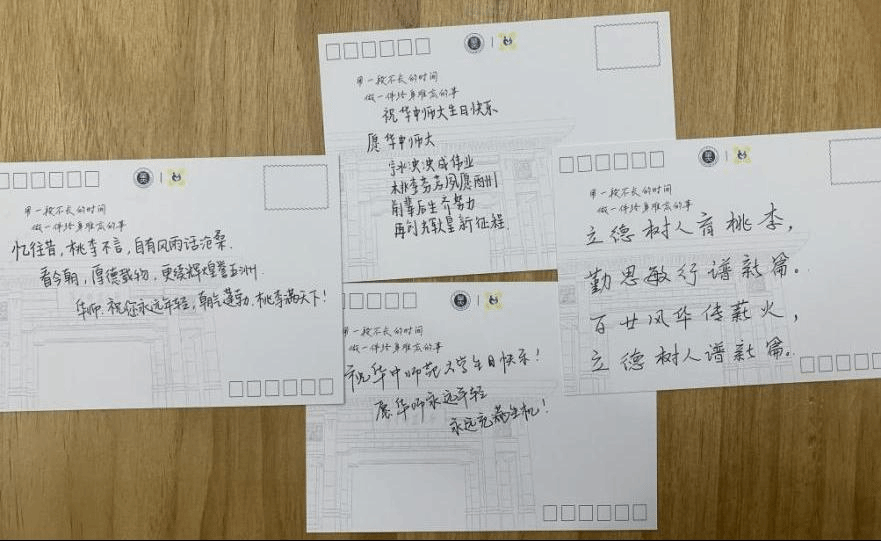 用一段不长的时间
做一件终身难忘的事
祝华中师大生日快乐
愿华中师大
泱泱成伟业
桃李芬芳夙愿两州
前辈后生齐努力
再创辉煌新征程
用一段不长的时间
做一件终身难忘的事
忆往昔，桃李不言，自有风雨话沧桑.
看今朝，厚德载物，更续辉煌誉五洲.
华师.祝你永远年轻，朝气蓬勃.桃李满天下！
用一段不长的时间
做一件终身难忘的事
祝华中师范大学生日快乐！
愿华师永远年轻
永远充满生机！
用一段不长的时间
做一件终身难忘的事
立德树人育桃李，
勤思敏行谱新篇。
百廿风华传薪火，
立德树人谱新篇。